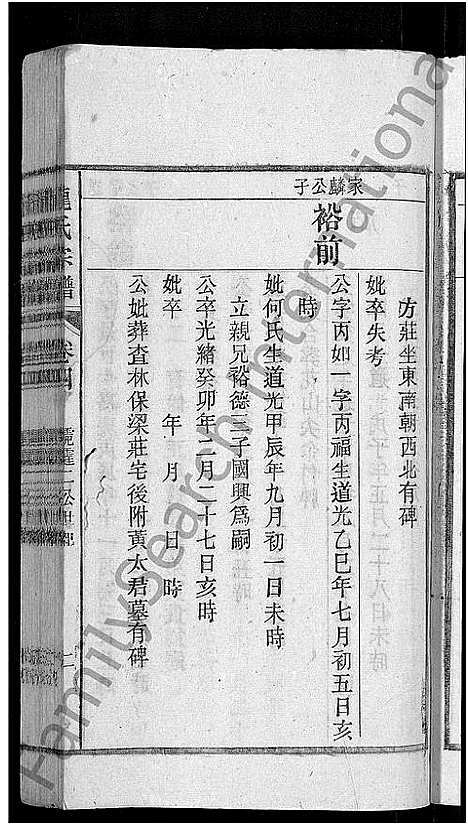 方莊坐東南朝西北有碑
妣卒失考
家麟公子
裕前
公字丙如一字丙福生道光乙巳年七月初五日亥
時
妣何氏生道光甲辰年九月初一日未時
立親兄裕德三子國興爲嗣
公卒光緒癸卯年二月二十七日亥時
妣卒 年 月 日 時
公妣葬査林保梁莊宅後附黃太君墓有碑
氏宗譜
卷四
二公世紀
FamilySearch International